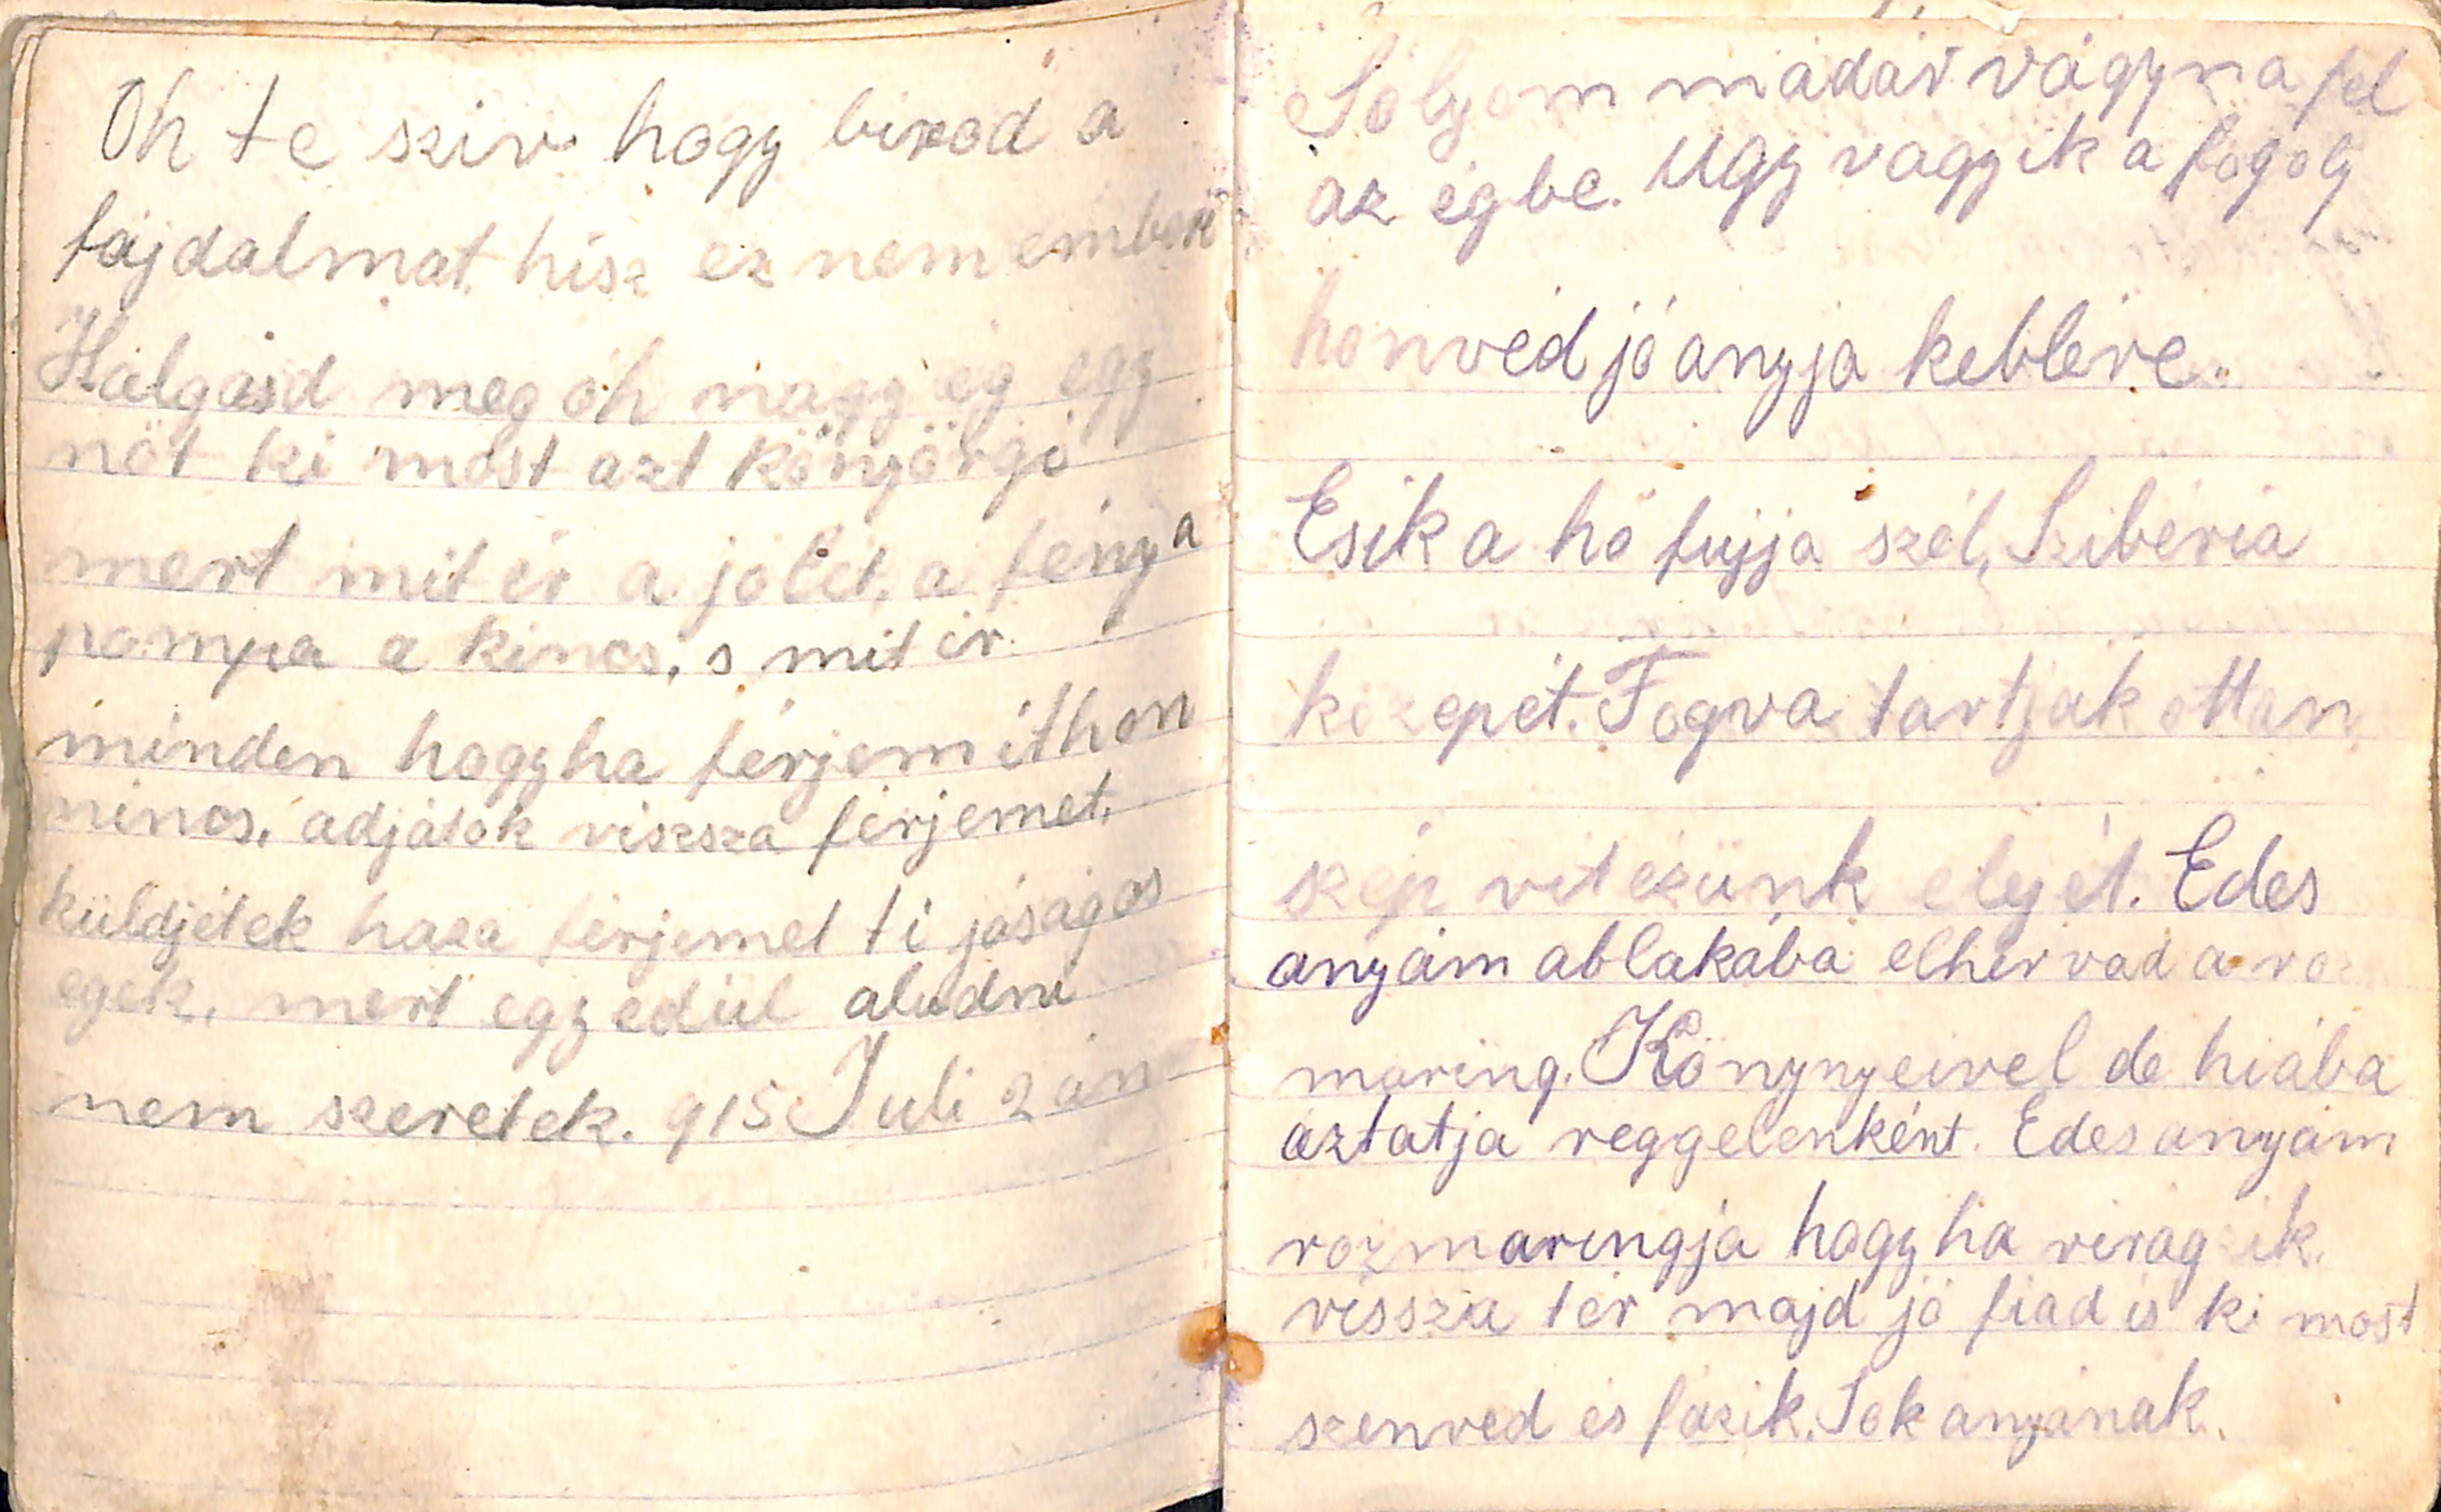 Oh te sziv hogy birod a
fájdalmat hisz ez nem
Halgasd meg óh nagy ég egy
nöt ki most azt könyörgi
mert mit ér a jolét, a fény a
pompa a kincs, s mit ér
minden hogyha férjem ithon
nincs, adjátok viszsza férjemet,
küldjétek haza férjemet ti jóságos
egek, mert egyedül aludni
nem szeretek. 915 Juli 2 án
Solyom madár vágyna fel
az égbe. Ugy vagyik a fogoly
honvéd jó anyja keblére.
Esik a hó fujja szél, Szibéria
közepét. Fogva tartják ottan
szép vitézünk elejét. Edes
anyám ablakába elhervad a roz
maring. Könynyeivel de hiába
áztatja reggelenként. Edes anyám
rozmaringja hogyha virágzik
vissza tér majd jó fiad is ki most
szenved és fázik. Sok anyának.